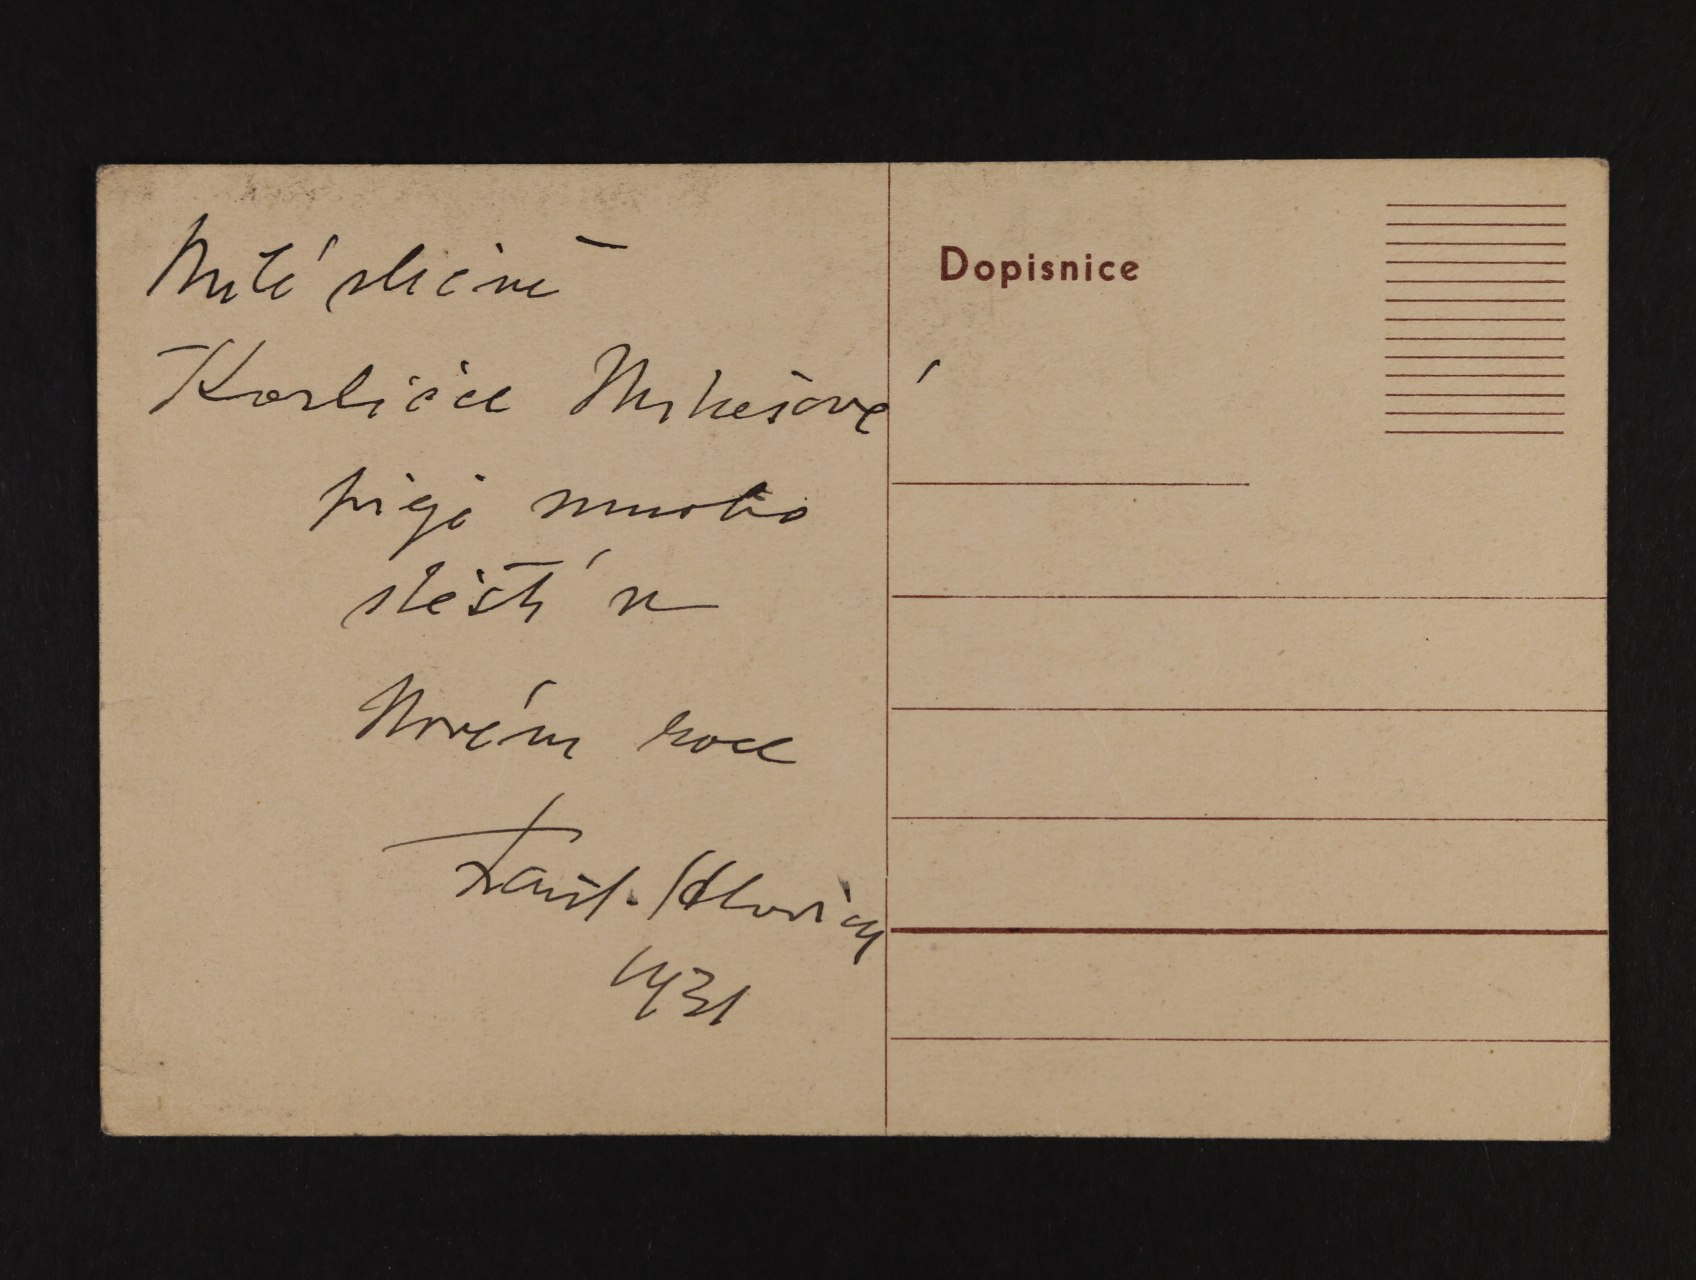 Milé slečně
Karličce Mikešové
přeje mnoho
štěstí v
Novém roce
1931
Dopisnice